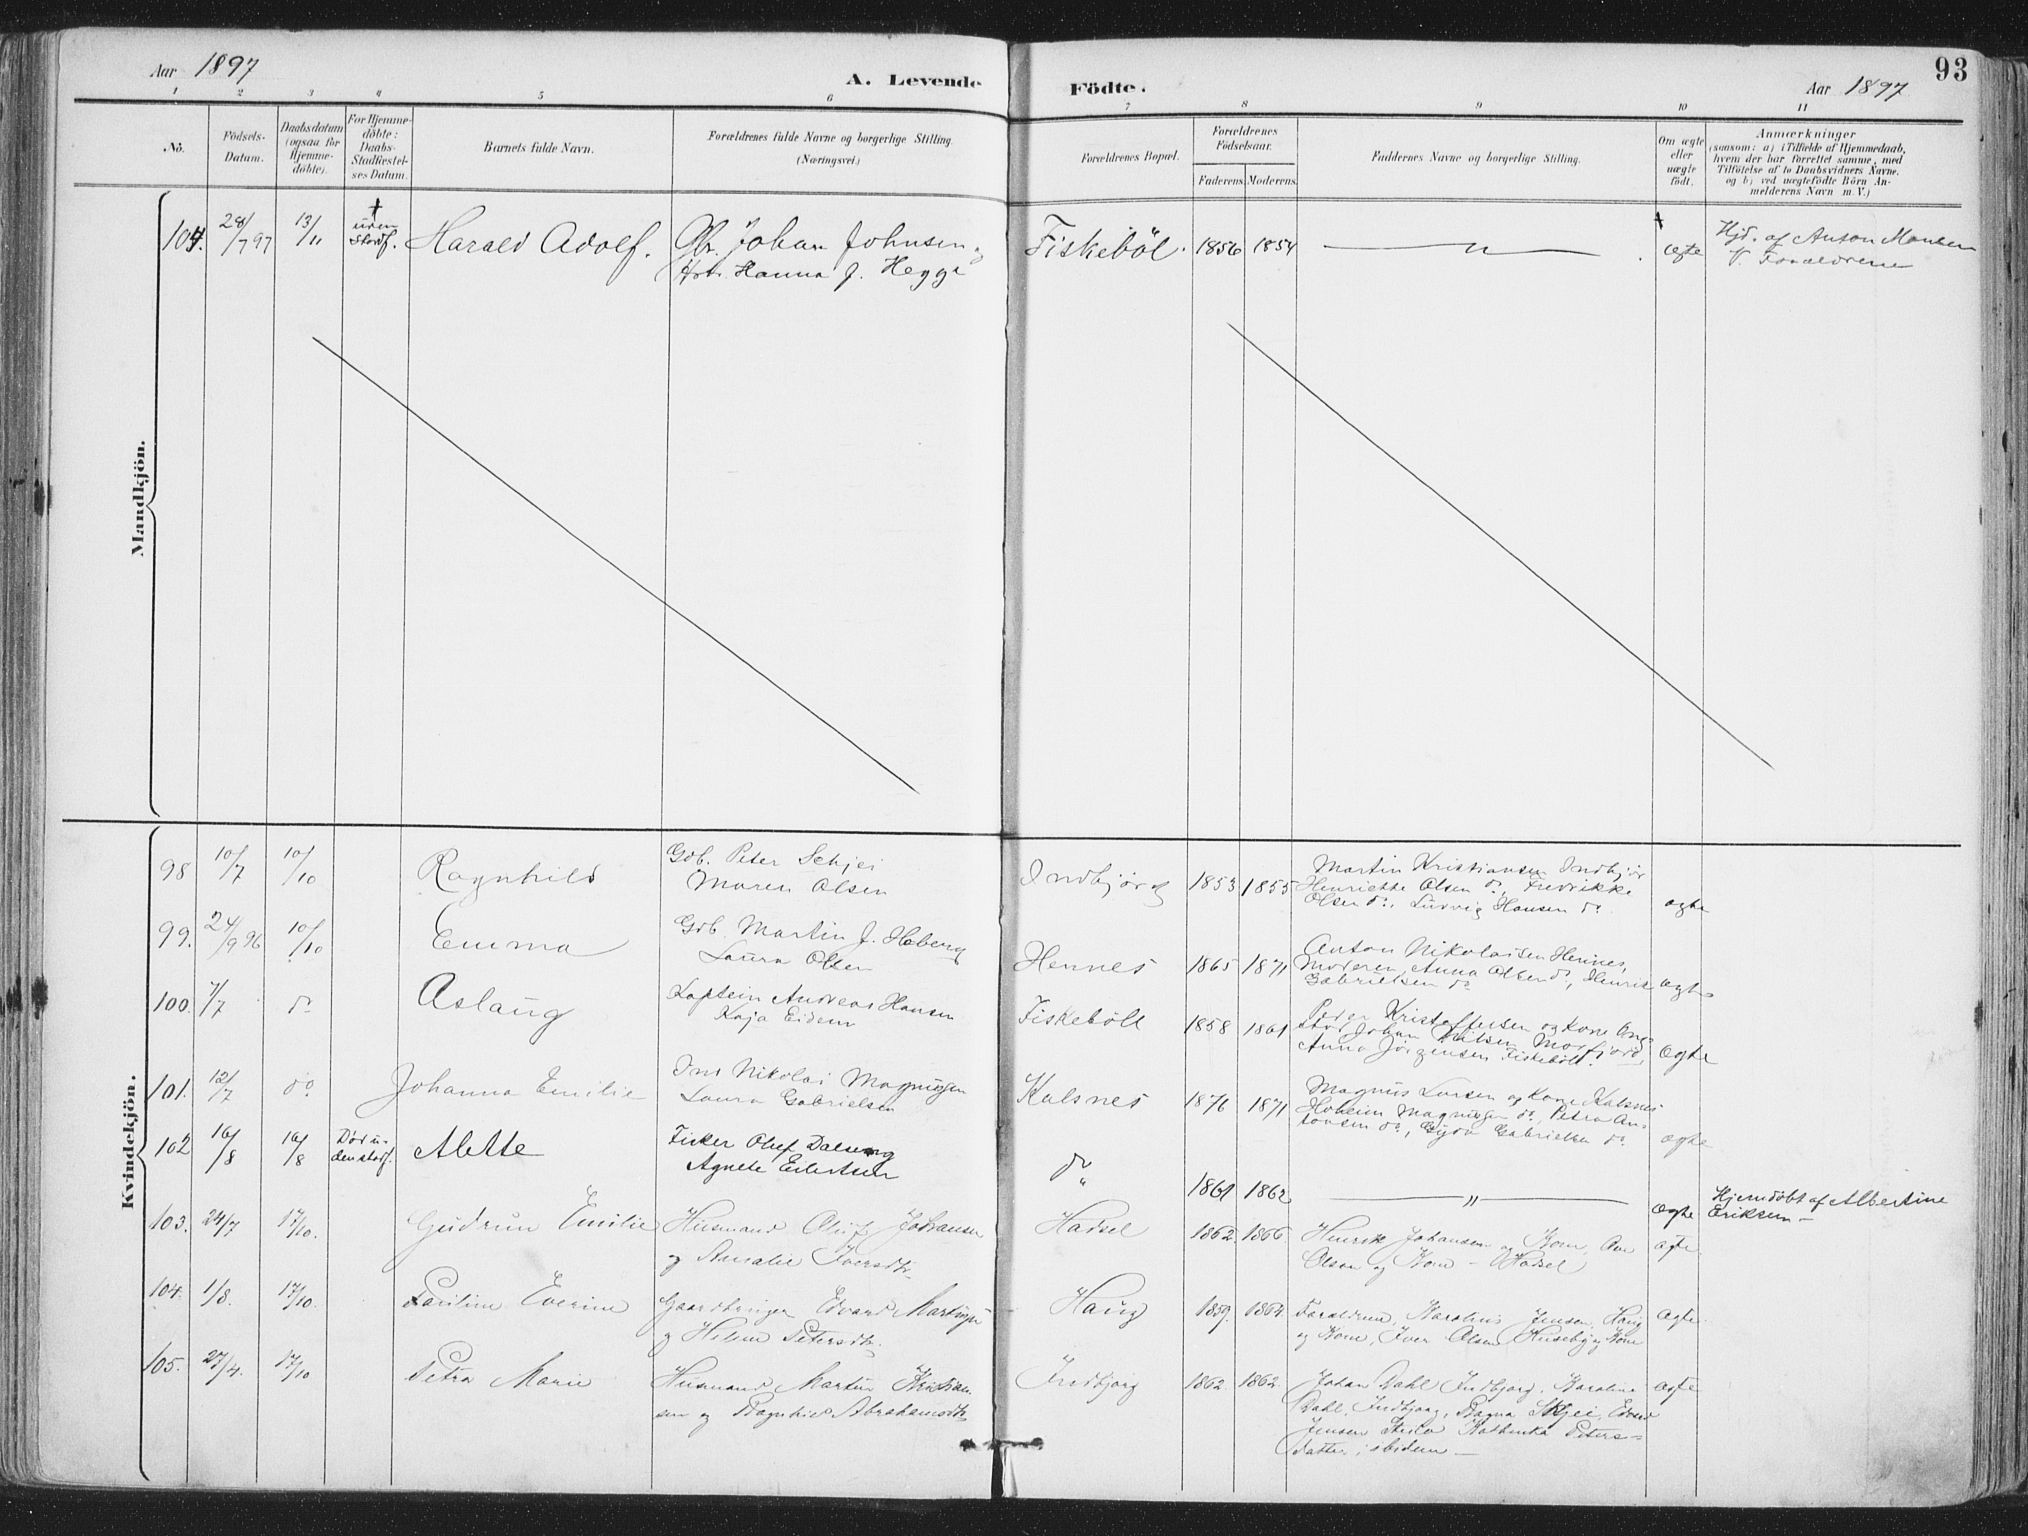 Aar 1897
A. Levende Födte.
Aar 1897
93
1 2 3 4 5 6 7 8 9 10 11
No.
Födsels-
Datum.
Daabsdatum
(ogsaa for
Hjemme-
döbte).
For Hjemme-
döbte:
Daabs-
Stadfæstel-
ses Datum.
Barnets fulde Navn.
Forældrenes fulde Navne og borgerlige Stilling.
(Næringsvei.)
Forældrenes Bopæl.
Forældrenes
Födselsaar.
Faderens.
Moderens.
Faddernes Navne og borgerlige Stilling.
Om ægte
eller
uægte
födt.
Anmærkninger
(saasom: a) i Tilfælde af Hjemmedaab,
hvem der har forrettet samme, med
Tilföielse af to Daabsvidners Navne,
og b) ved uægtefödte Börn An-
melderens Navn m. V.)
Mandkjön.
104. 28/7 97 13/11 † uden stadf. Harald Adolf. Gbr. Johan Johnsen og Fiskeböl. 1856 1854 — " — ægte Hjd. af Anton Monsen
Hstr. Hanna J. Hegge V. Forældrene
Kvindekjön.
98 10/7 10/10 Ragnhild Gdb. Peter Schjei Indbjörg 1853 1855 Martin Kristiansen Indbjör
Maren Olsen Henriette Olsen do, Fredrikke
Olsen do, Ludvig Hansen do. ægte
99. 24/9 96 10/10 Emma Gdb. Martin J. Haberg Hennes 1865 1871 Anton Nikolaisen Hennes,
Laura Olsen Moderen, Anna Olsen do, Henrik ægte
Gabrielsen do
100. 7/7 do Aslaug Kaptein Andreas Hansen Fiskeböll 1858 1861 Peder Kristoffersen og Kone
Kaja Eidem Johan Nilsen Morfjord,
Anna Jörgensen Fiskeböll. ægte
101. 12/7 do Johanna Emilie Ins Nikolai Magnussen Kalsnes 1876 1871 Magnus Larsen og Kone Kalsnes
Laura Gabrielsen Magnussen do, Petra An-
tonsen do, Gyda Gabrielsen do. ægte
102 16/8 16/8 Död u-
den stadf. Alette Fisker Oluf Dalseng do 1861 1862 — " — ægte Hjemdöbt af Albertine
Agnete Eilertsen Eriksen —
103. 24/7 17/10. Gudrun Emilie Husmand Oluf Johansen Hadsel 1862. 1866. Henrik Johansen og Kone, Ane ægte
og Amalie Iversdtr. Olsen og Kone – Hadsel
104. 1/8. 17/10. Pauline Everine Gaardbruger Edvard Martinsen Haug 1859. 1864. Forældrene, Karolius Jensen, Haug ægte.
og Helene Petersdtr. og Kone, Iver Olsen Huseby og Kone
105. 27/4. 17/10 Petra Marie Husmand Martin Kristian- Indbjorg 1862. 1862. Johan Dahl Indbjorg, Karoline ægte
sen og Ragnhild Abrahamsdtr. Dahl, Indbjorg, Ragna Skjei, Edvard
Jensen Kathinka Peters-
datter, ibidem —